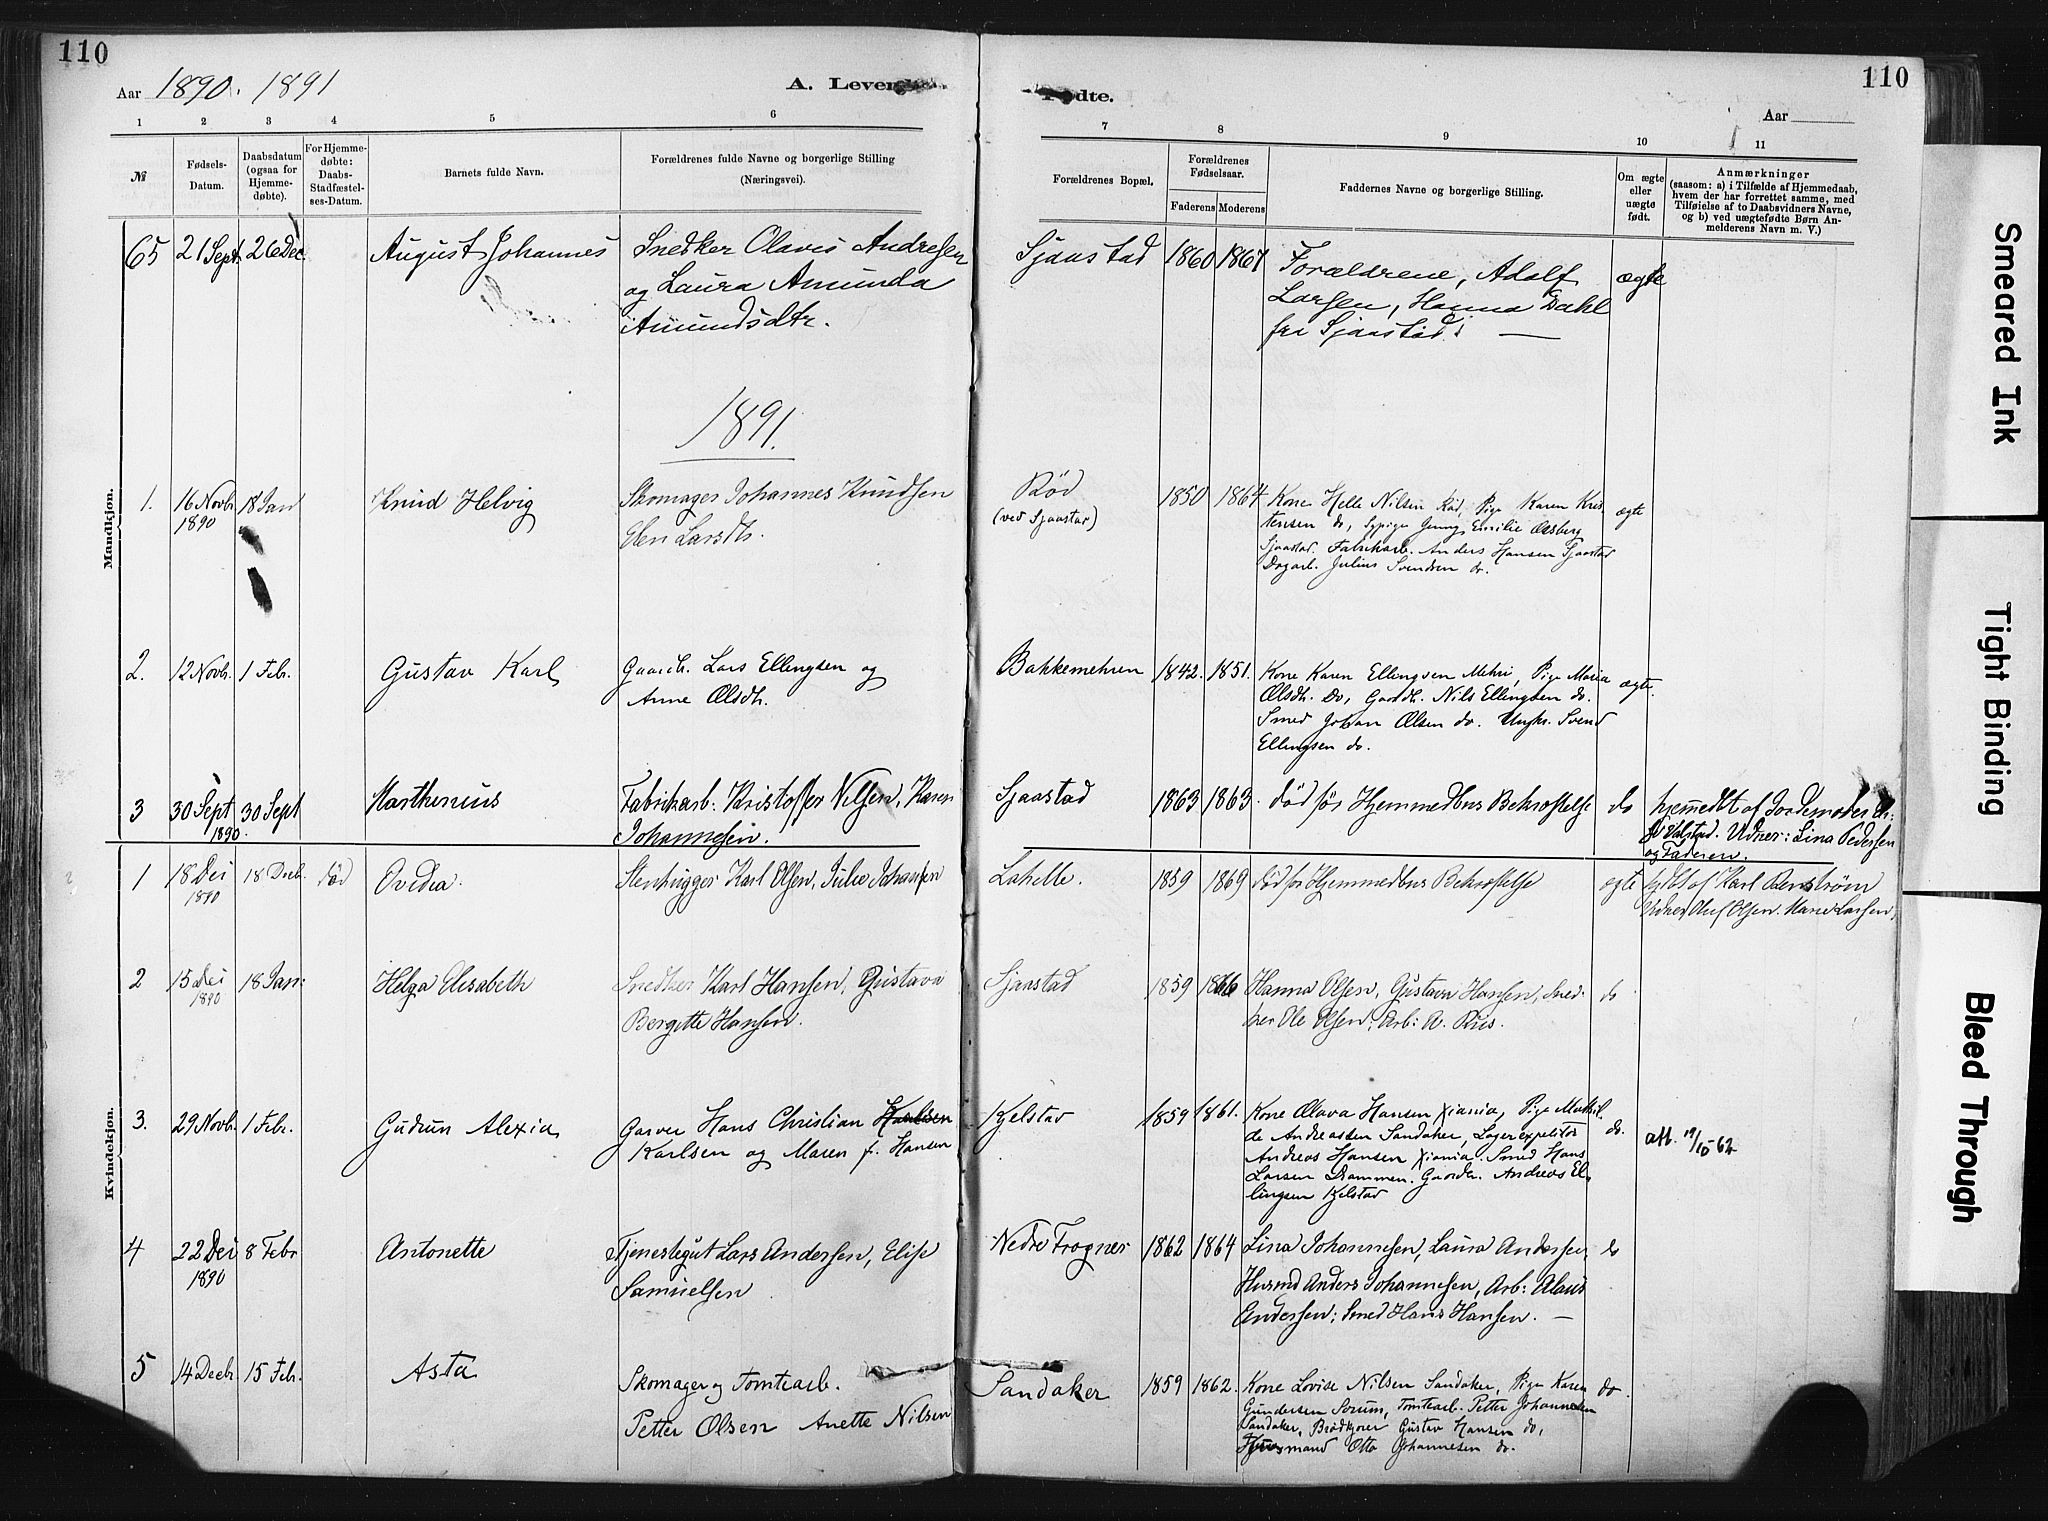 110
110
Aar 1890. 1891
A. Levende
Fødte.
Aar
1 2 3 4 5 6 7 8 9 10 11
№
Fødsels-
Datum.
Daabsdatum
(ogsaa for
Hjemme-
døbte).
For Hjemme-
døbte:
Daabs-
Stadfæstel-
ses-Datum.
Barnets fulde Navn.
Forældrenes fulde Navne og borgerlige Stilling
(Næringsvei).
Forældrenes Bopæl.
Forældrenes
Fødselsaar.
Faderens Moderens
Faddernes Navne og borgerlige Stilling.
Om ægte
eller
uægte
født.
Anmærkninger
(saasom: a) i Tilfælde af Hjemmedaab,
hvem der har forrettet samme, med
Tilføielse af to Daabsvidners Navne,
og b) ved uægtefødte Børn An-
melderens Navn m. V.)
65 21 Sept. 26 Dec. August Johannes Snedker Olavis Andresen
og Laura Amunda
Amundsdtr.
Sjaastad 1860 1867 Forældrene, Adolf
Larsen, Hanna Dahl
fra Sjaastad. —
ægte
1891.
Mandkjøn.
1. 16 Novbr. 1890 18 Jan Knud Helvig Skomager Johannes Knudsen
Elen Larsdtr.
Rød
(ved Sjaastad)
1850 1864 Kone Helle Nilsen Rød, Pige Karen Kris-
tensen do, Sypige Jenny Emilie Aasberg
Sjaastad. Fabrikarb. Anders Hansen Sjaastad
Dagarb. Julius Svendsen do.
ægte
2. 12 Novbr. 1 Febr. Gustav Karl Gaardbr. Lars Ellingsen og
Anne Olsdtr.
Bakkemehren 1842. 1851. Kone Karen Ellingsen Mehri, Pige Maria
Olsdtr. do, Gaardbr. Nils Ellingsen do.
Smed Johan Olsen do. Ungkr. Svend
Ellingsen do.
ægte.
3 30 Sept 1890. 30 Sept Marthenius Fabrikarb. Kristoffer Nilsen, Karen
Johannesen.
Sjaastad 1863 1863. død før Hjemmedbs Bekræftelse do hjemmedbt af Jordemoder
Valstad. Vidner: Lina Pedersen
og Faderen.
Kvindekjøn.
1 18 Dec 1890 18 Decb. død Ovedia. Stenhugger Karl Olsen, Julie Johansen
Lahelle. 1859 1869 død før Hjemmedbs Bekræftelse ægte hjdbt af Karl Benstrøm
Vidner Oluf Olsen. Marie Larsen.
2 15 Dec 1890 18 Jan: Helga Elisabeth Snedker Karl Hansen, Gustava
Bergitte Hansen.
Sjaastad 1859 1866 Hanna Olsen, Gustava Hansen, Sned-
ker Ole Olsen; Arb: A. Riis.
do
3. 29 Novb. 1 Febr. Gudrun Alexia Garver Hans Christian Karlsen
Karlsen og Maren f. Hansen
Kjelstad 1859 1861. Kone Olava Hansen Xiania, Pige Mathil-
de Andreasen Sandaker, Lagerexpeditør
Andreas Hansen Xiania. Smed Hans
Larsen Drammen. Gaardbr. Andreas El-
lingsen Kjelstad
do.
att. 19/10-62
4 22 Dec 1890 8 Febr Antonette Tjenestegut Lars Andersen, Elise
Samuelsen
Nedre Frogner 1862 1864 Lina Johannesen, Laura Andersen
Husmd Anders Johannesen, Arb: Alaus
Andersen; Smed Hans Hansen. —
do
5 14 Decbr 15 Febr. Asta Skomager og Tomtearb.
Petter Olsen Anette Nilsen
Sandaker 1859 1862. Kone Lovise Nilsen Sandaker, Pige Karen
Gundersen Sorum, Tomtearb. Petter Johannesen
Sandaker, Brødkjører Gustav Hansen do,
Husmand Otto Johannesen do.
do.
Smeared Ink
Tight Binding
Bleed Through